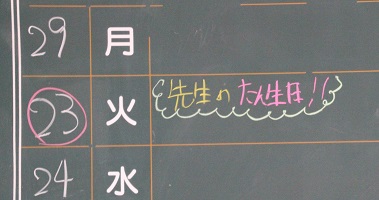 29 月
23 火 先生のたん生日!!
24 水